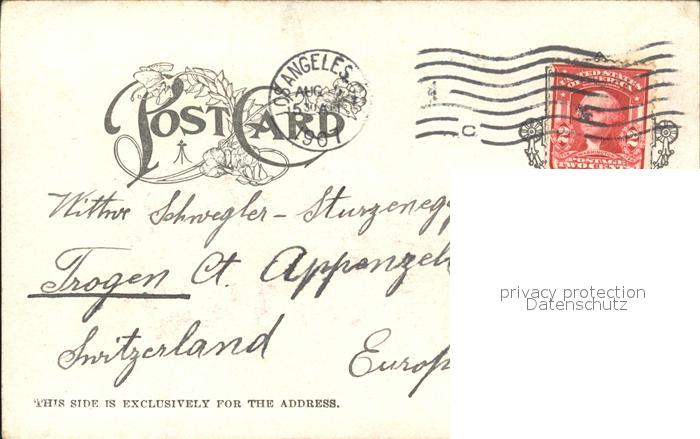 POST CARD
LOS ANGELES, CAL.
AUG
5 30 AM
1907
C
UNITED STATES
OF AMERICA
2 2
POSTAGE
TWO CENTS
Wittwe Schwegler - Sturzenegg
Trogen Ct. Appenzell
Switzerland Europ
privacy protection
Datenschutz
THIS SIDE IS EXCLUSIVELY FOR THE ADDRESS.